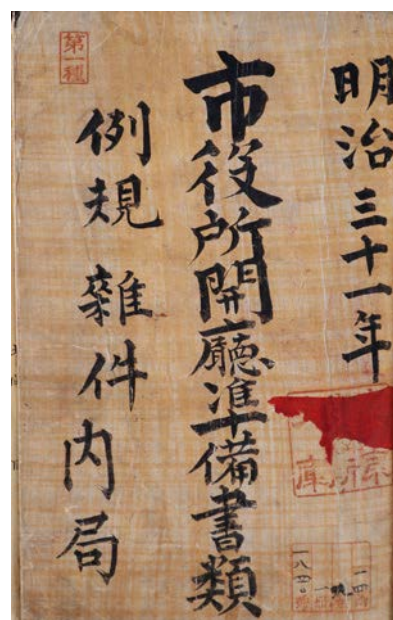 明治三十一年
市役所開廳準備書類
例規雜件内局
第一種